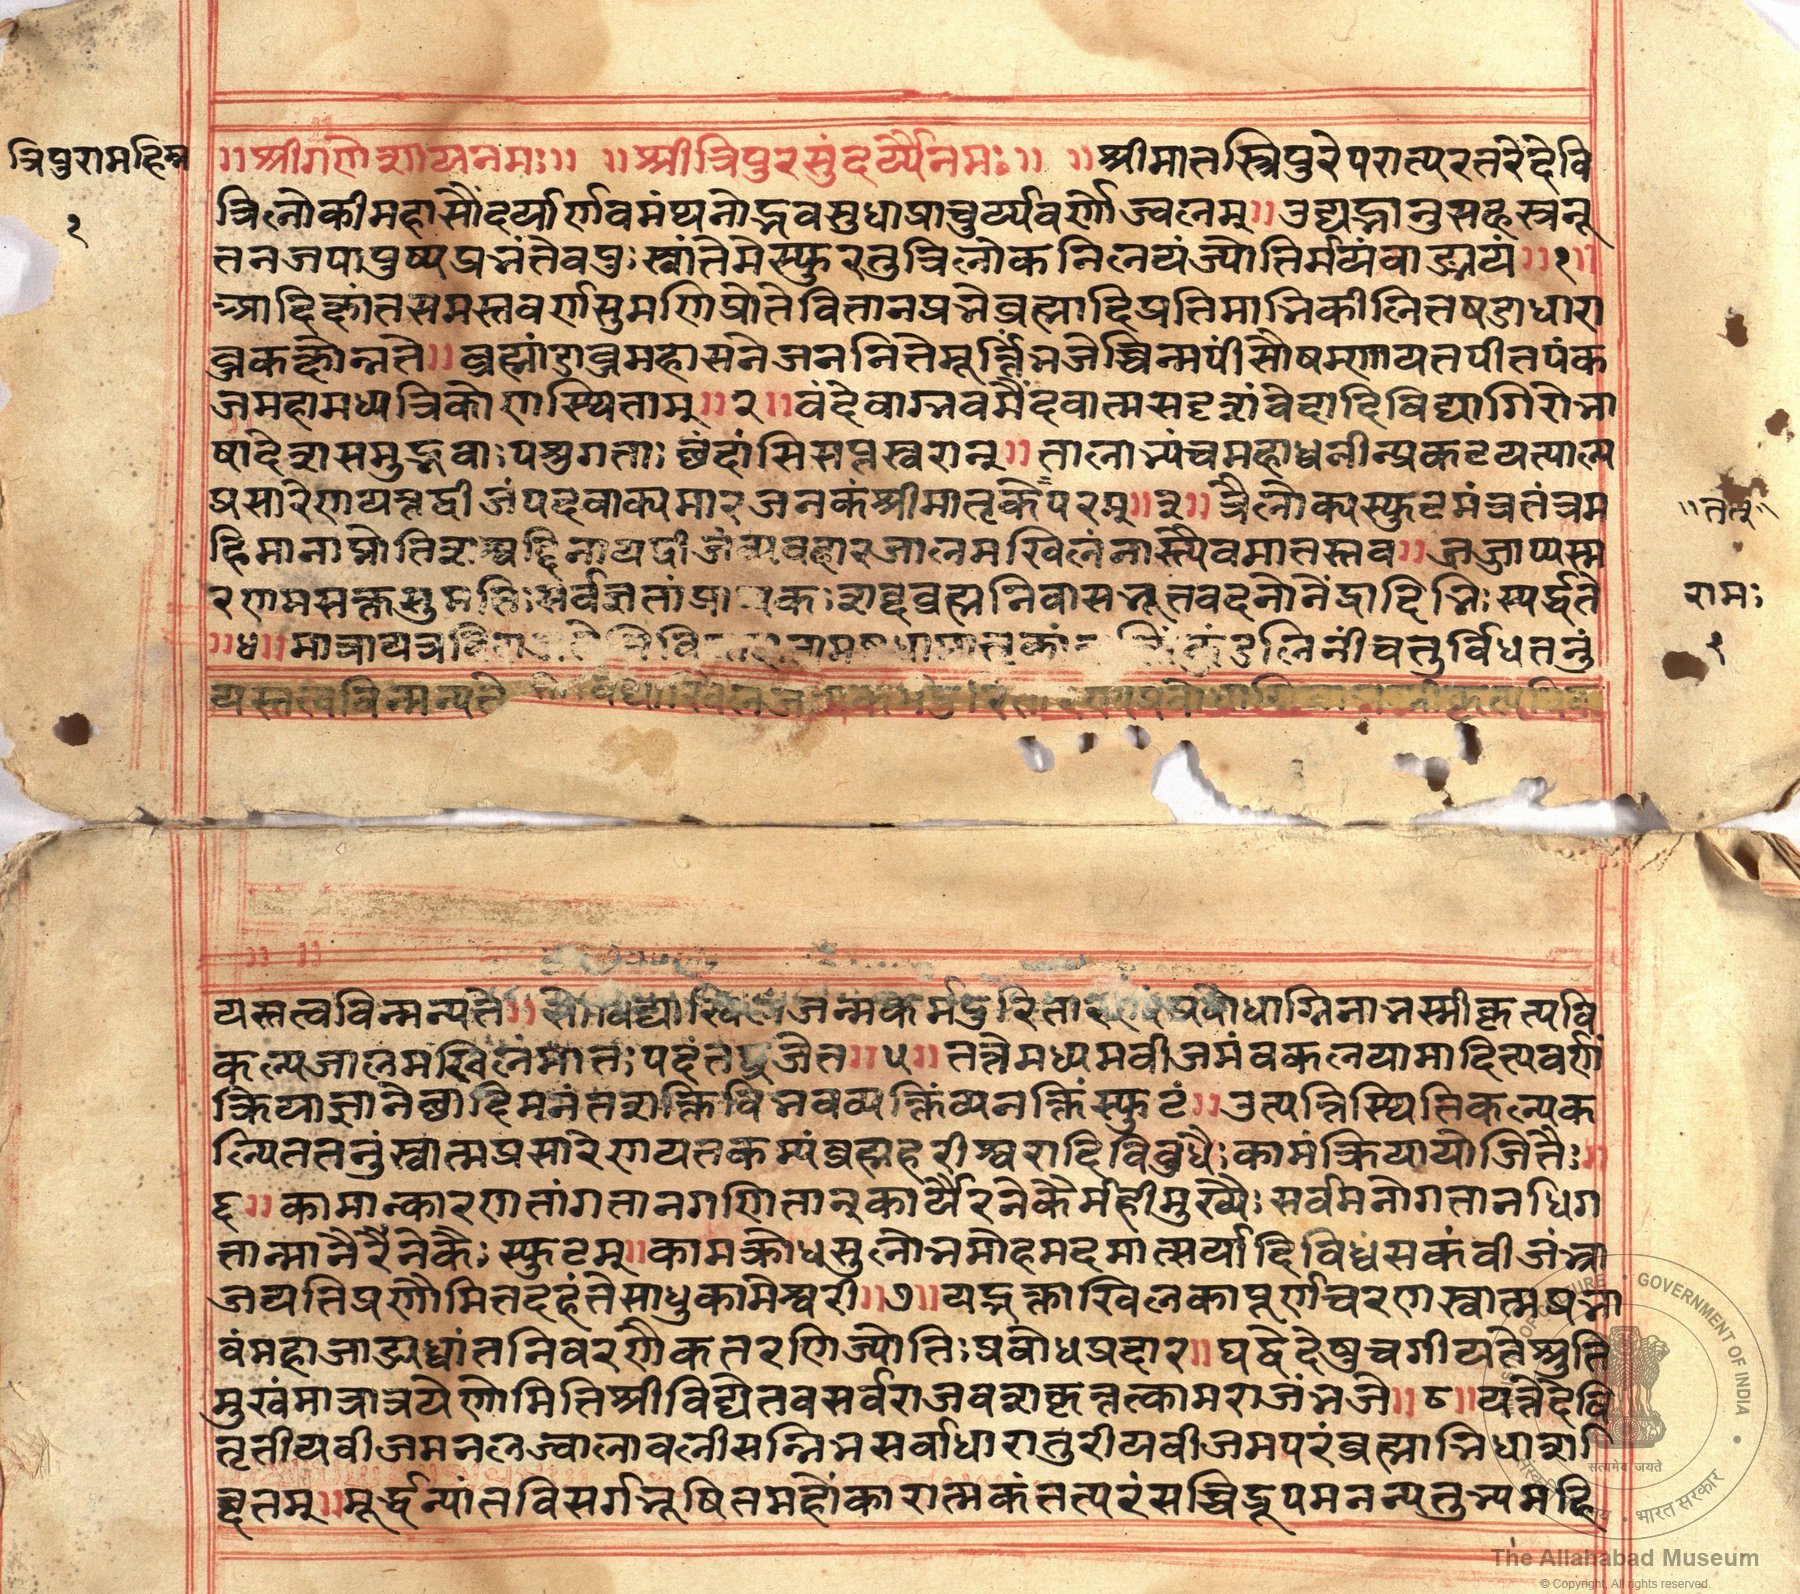 त्रिपुरामहिम्न
१
॥श्रीगणेशायनमः॥ ॥श्रीत्रिपुरसुंदर्य्यैनमः॥ ॥श्रीमातस्त्रिपुरेपरात्परतरेदेवि
त्रिलोकीमहासौंदर्यार्णवमंथनोद्भवसुधाप्राचुर्य्यवर्णोज्वलम्॥उद्यद्भानुसहस्रनू
तनजपापुष्पप्रभंतेवपुःस्वांतेमेस्फुरतुत्रिलोकनिलयंज्योतिर्मयंवाङ्मयं॥१॥
आदिक्षांतसमस्तवर्णसुमणिप्रोतेवितानप्रभेब्रह्मादिप्रतिमाभिकीलितषडाधारा
ब्जकक्षोन्नते॥ब्रह्मांडाब्जमहासनेजननितेमूर्त्तिंभजेचिन्मयींसौषम्णायतपीतपंक
जमहामध्यत्रिकोणस्थिताम्॥२॥वंदेवाग्भवमैंदवात्मसदृशंवेदादिविद्यागिरोभा
षादेशसमुद्भवाःपशुगताःछंदांसिसप्तस्वरान्॥तालान्पंचमहाध्वनीन्प्रकटयत्यात्म
प्रसारेणयत्तद्बीजंपदवाक्यमारजनकंश्रीमातृकेपरम्॥३॥त्रैलोक्यस्फुटमंत्रतंत्रम
॥तत्॥
हिमानाप्नोतिशश्वद्दिनायद्बीजंव्यवहारजालमखिलंनास्त्येवमातस्तव॥तज्जाप्यस्म
रणप्रसक्तसुमतिःसर्वज्ञतांप्राप्यकःशब्दब्रह्मनिवासभूतवदनोनेंद्रादिभिःस्पर्द्धते
रामः
१
॥४॥मात्रायत्र कुंडलिनींचतुर्विधतनुं
यस्तत्त्वविन्मन्यते
यस्तत्वविन्मन्यते॥सोविद्याखिलजन्मकर्मदुरितारण्यंप्रबोधाग्निनाभस्मीकृत्यवि
कल्पजालमखिलंमातःपदंतद्व्रजेत॥५॥तत्तेमध्यमबीजमंबकलयामादित्यवर्णां
क्रियाज्ञानेछादिमनंतशक्तिविभवव्यक्तिंव्यनक्तिंस्फुटं॥उत्पत्तिस्थितिकल्पक
ल्पिततनुंस्वात्मप्रसारेणयतकम्यंब्रह्महरीश्वरादिविबुधैःकामंक्रियायोजितैः॥
६॥कामान्कारणतांगतानगणितान्कार्य्यैरनेकैर्महीमुख्यैःसर्वमनोगतानधिग
तान्मानैरनेकैःस्फुटम्॥कामक्रोधसुलोभमोहमदमात्सर्यादिविध्वंसकंबीजंभ्रा
जयतिप्रणौमितदहंतेसाधुकामेश्वरी॥७॥यद्भक्ताखिलकापूर्णचरणस्वात्मप्रभा
वंमहाजाड्यध्वांतनिवरणैकतरणिज्योतिःप्रबोधप्रदार॥यद्वेदेषुचगीयतेश्रुति
मुखंमात्रात्रयेणोमितिश्रीविद्येतवसर्वराजवशकृत्तत्कामराजंभजे॥८॥यत्तेदेवि
तृतीयबीजमनलज्वालावलीसन्निभसर्वाधारातुरीयबीजमपरंब्रह्माभिधाशब्दि
ब्दितम्॥मूर्द्धन्यांतविसर्गभूषितमहौंकारात्मकंतत्परंसच्चिद्रूपमनन्यतुल्यमहि
GOVERNMENT OF INDIA
सत्यमेव जयते
भारत सरकार
The Allahabad Museum
© Copyright, All rights reserved.